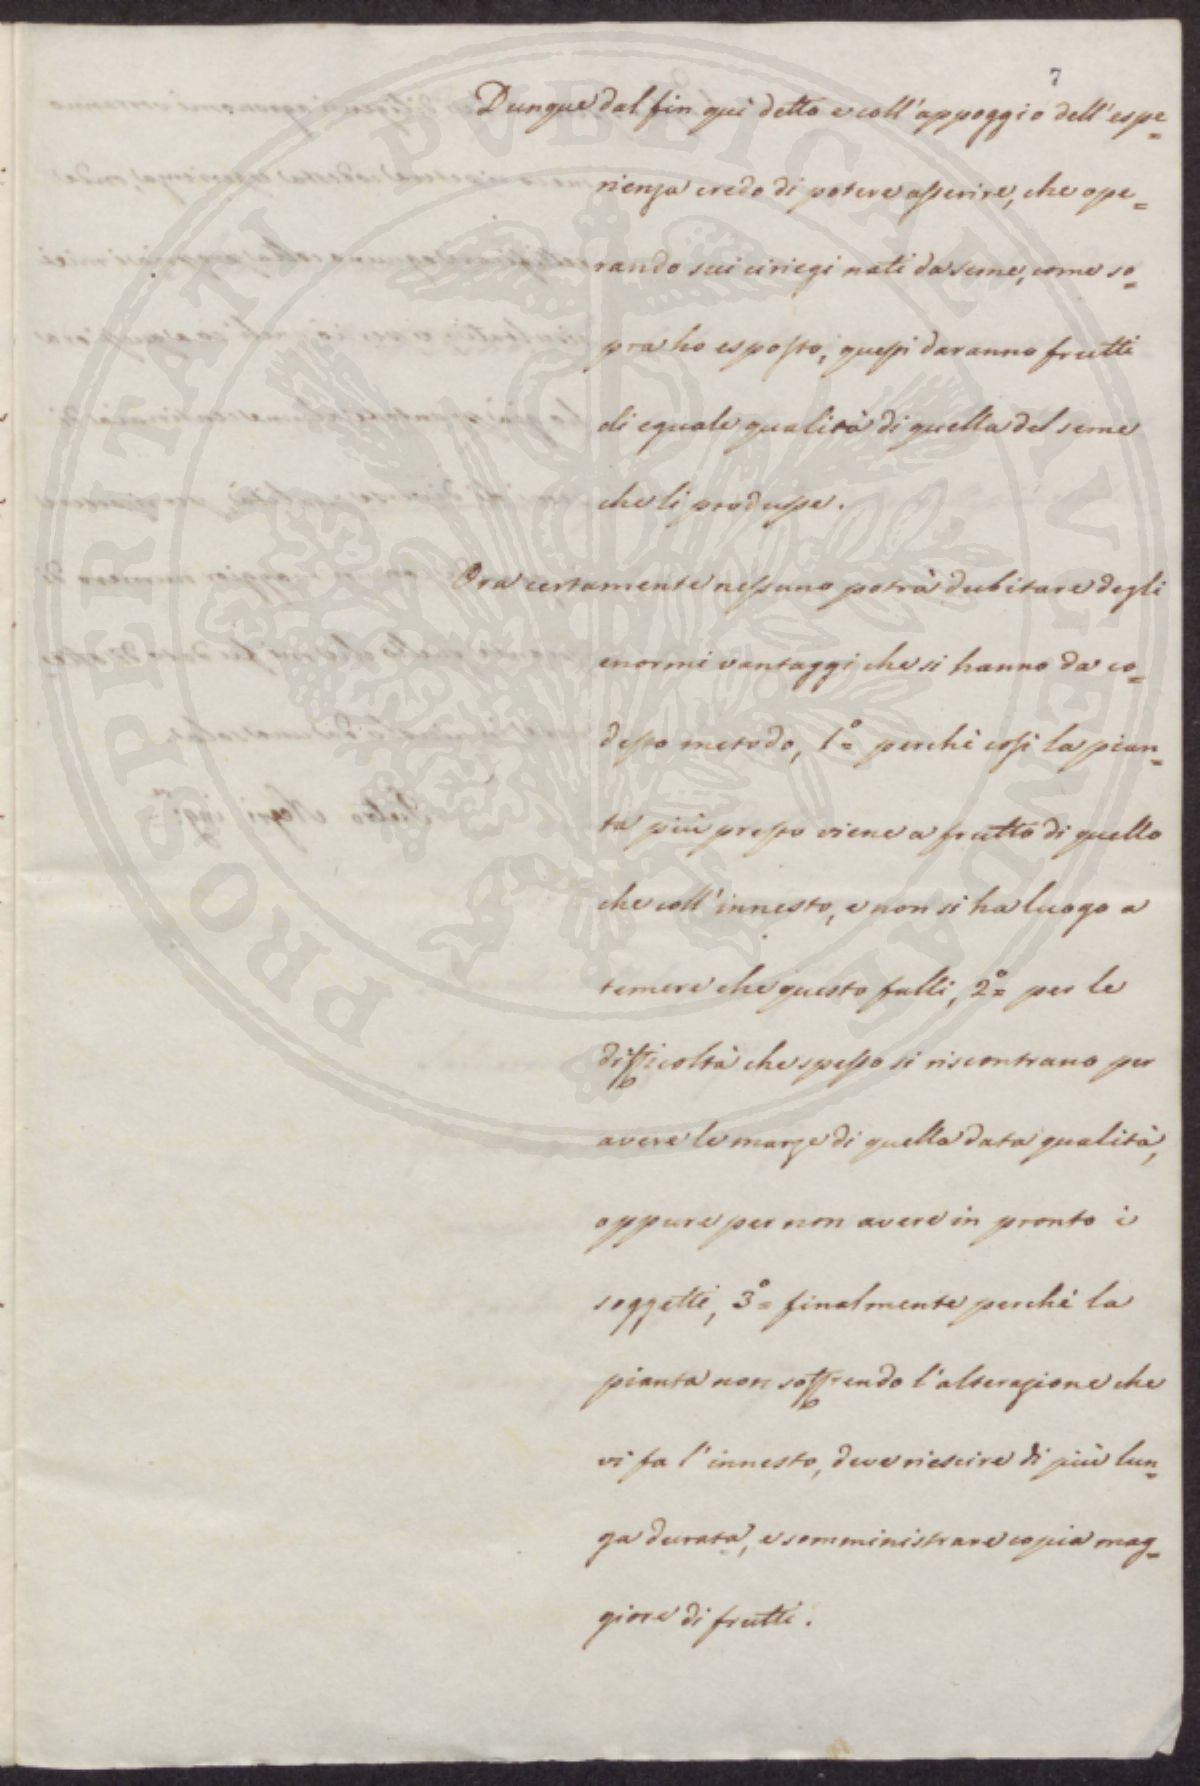 7
Dunque dal fin quì detto e coll'appoggio dell'espe=
rienza credo di potere asserire, che ope=
rando sui ciriegi nati da seme, come so=
pra ho esposto, questi daranno frutti
di eguale qualità di quella del seme
che li produsse.
Ora certamente nessuno potrà dubitare degli
enormi vantaggi che si hanno da co=
desto metodo, 1.° perchè così la pian=
ta più presto viene a frutto di quello
che coll'innesto, e non si ha luogo a
temere che questo falli, 2.° per le
difficoltà che spesso si riscontrano per
avere le marze di quella data qualità,
oppure per non avere in pronto i
soggetti, 3.° finalmente perchè la
pianta non soffrendo l'alterazione che
vi fa l'innesto, deve riescire di più lun=
ga durata, e somministrare copia mag=
giore di frutti.
PROSPERITATI PUBLICAE AUGENDAE